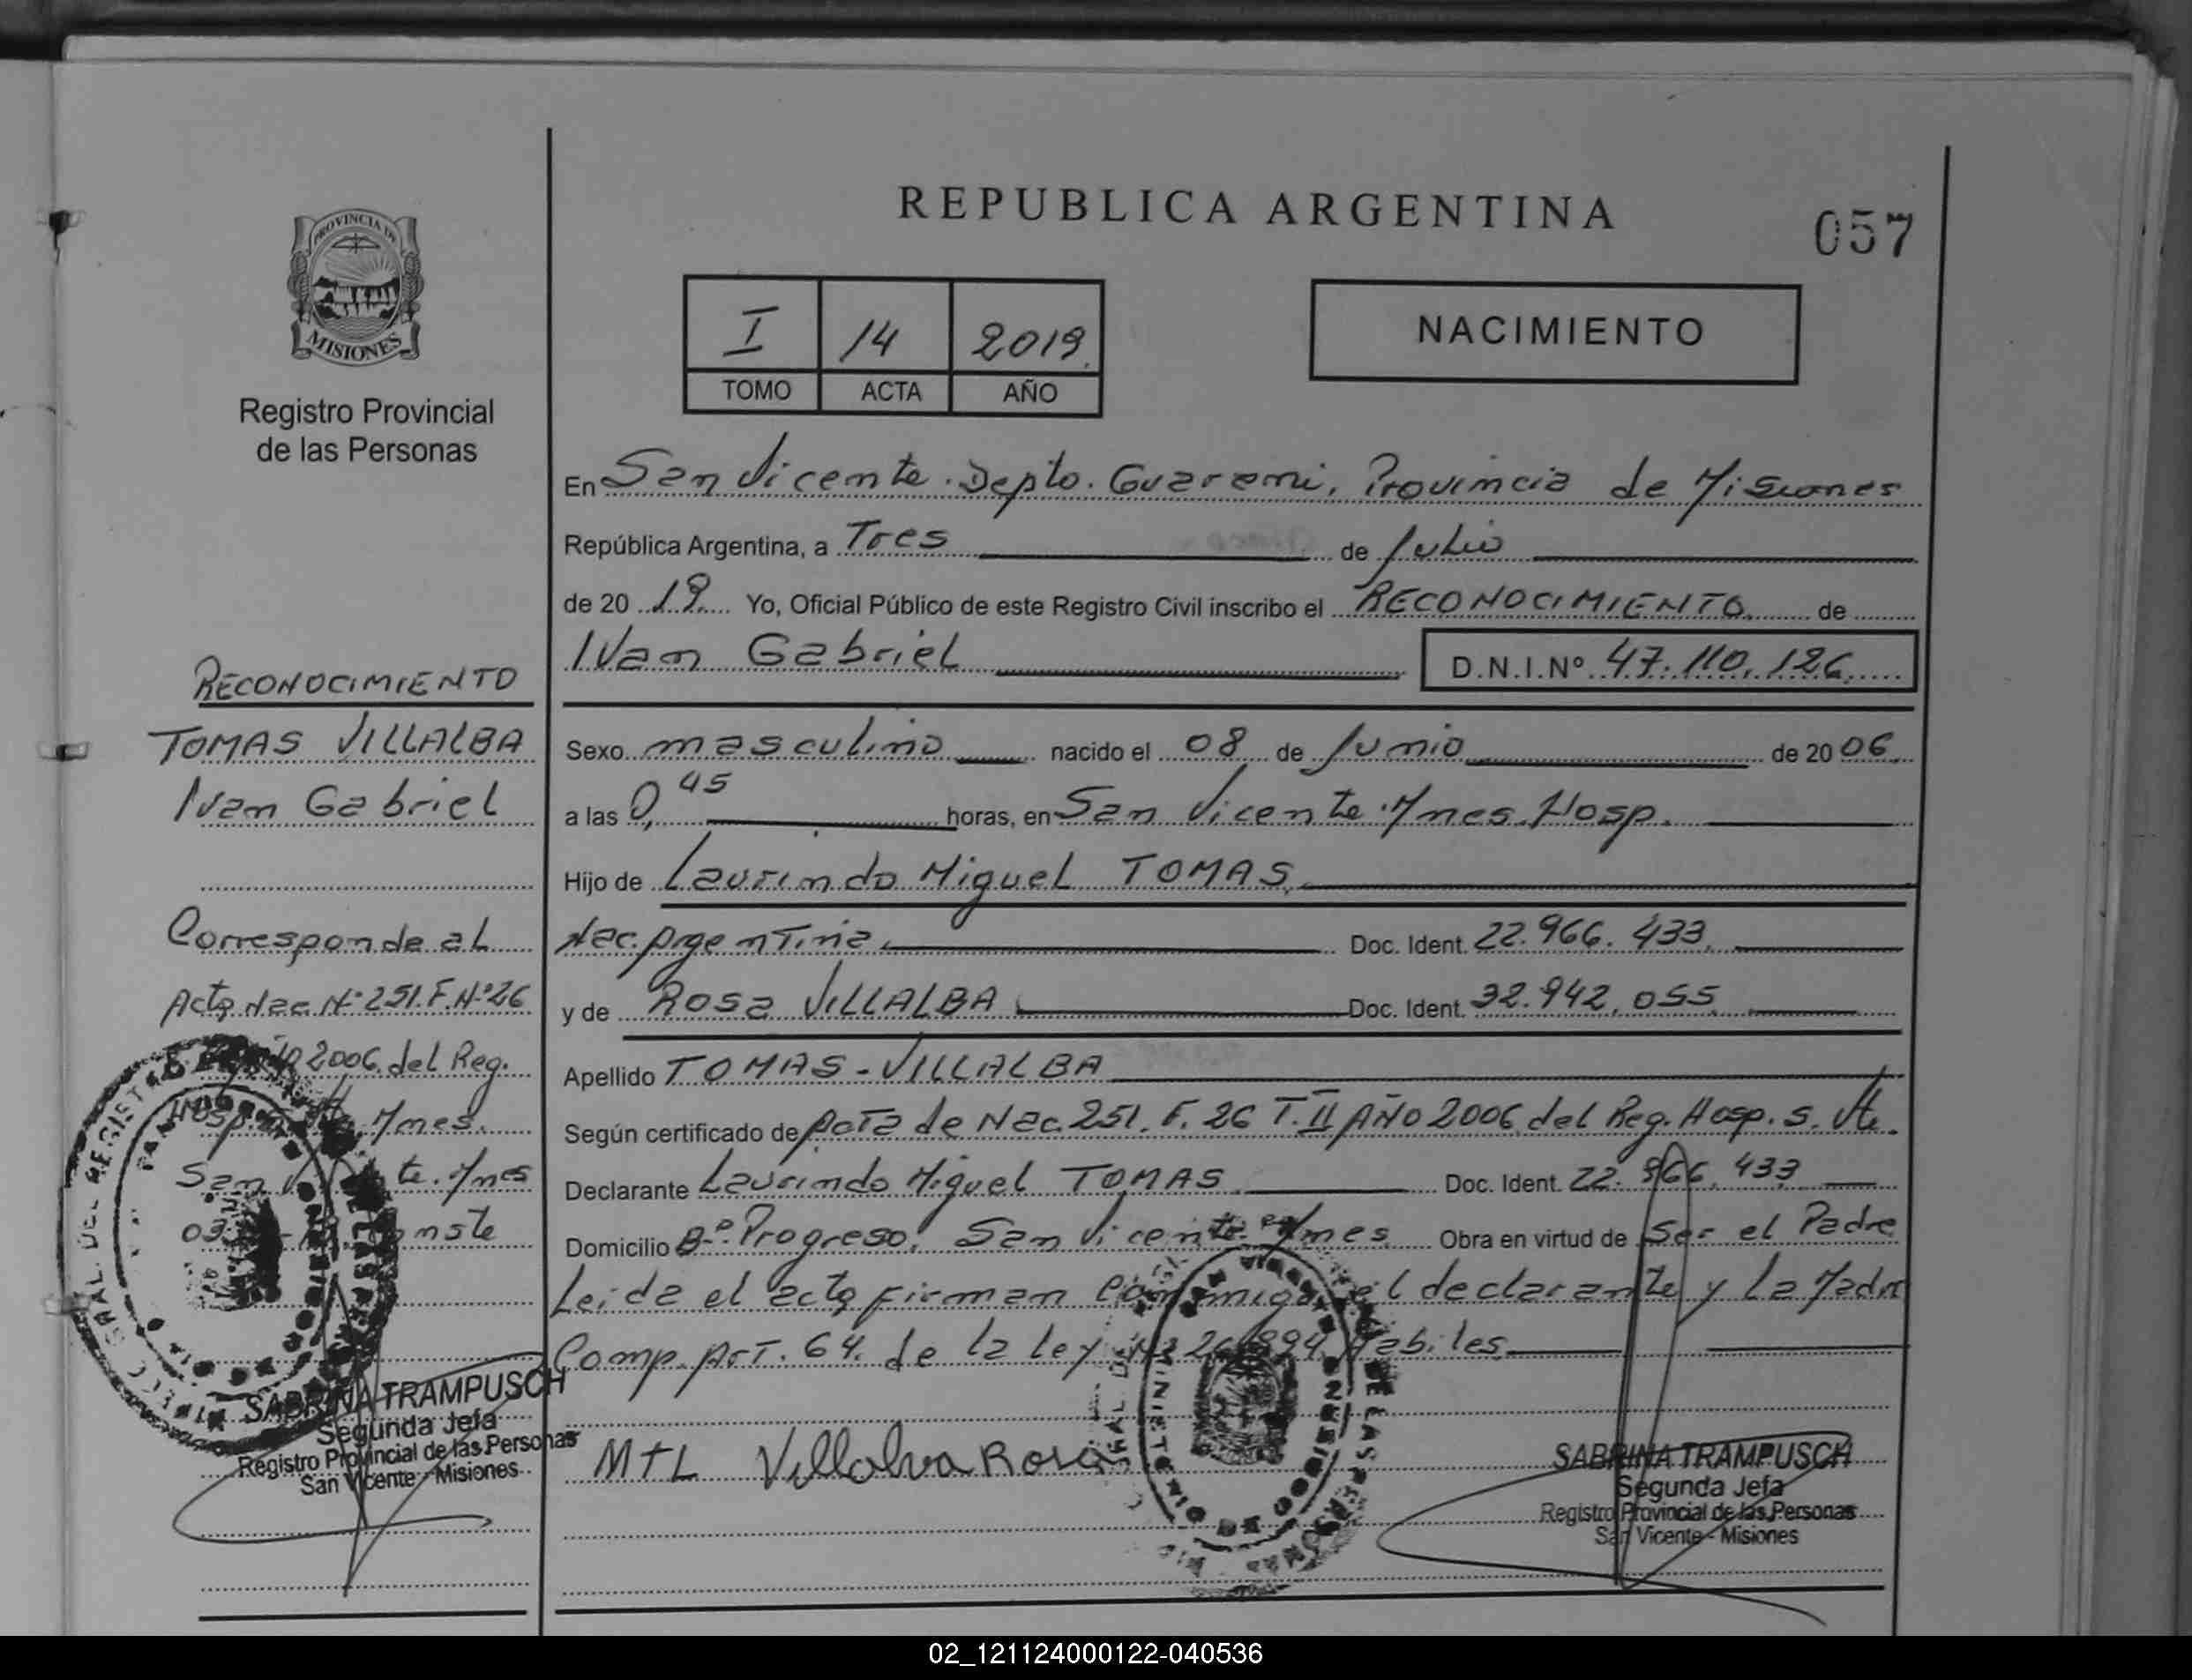 REPUBLICA ARGENTINA
057
PROVINCIA DE
MISIONES
Registro Provincial
de las Personas
I 14 2019
TOMO ACTA AÑO
NACIMIENTO
En San Vicente. Depto. Guarani, Provincia de Misiones
República Argentina, a Tres de Julio
de 20 19 Yo, Oficial Público de este Registro Civil inscribo el RECONOCIMIENTO de
Ivan Gabriel D.N.I.Nº 47.110.126
Sexo masculino nacido el 08 de Junio de 20 06
a las 0,45 horas, en San Vicente. Mnes. Hosp.
Hijo de Laurindo Miguel TOMAS
Nac. Argentina Doc. Ident. 22.966.433
y de Rosa VILLALBA Doc. Ident. 32.942.055
Apellido TOMAS - VILLALBA
Según certificado de Acta de Nac. 251. F. 26 T. II AÑO 2006 del Reg. Hosp. S. Vte.
Declarante Laurindo Miguel TOMAS Doc. Ident. 22.966.433
Domicilio Bº. Progreso. San Vicente Mnes Obra en virtud de Ser el Padre
Leida el acta firman conmigo el declarante y La Madre
Comp. Art. 64. de la ley 26.994 Habiles
MTL Villalva Rosa
SABRINA TRAMPUSCH
Segunda Jefa
Registro Provincial de las Personas
San Vicente - Misiones
RECONOCIMIENTO
TOMAS VILLALBA
Ivan Gabriel
Corresponde al
Acta Nac. Nº 251. F. Nº 26
2006 del Reg.
Hosp. Mnes.
San te. Mnes
03
SABRINA TRAMPUSCH
Segunda Jefa
Registro Provincial de las Personas
San Vicente - Misiones
02_121124000122-040536